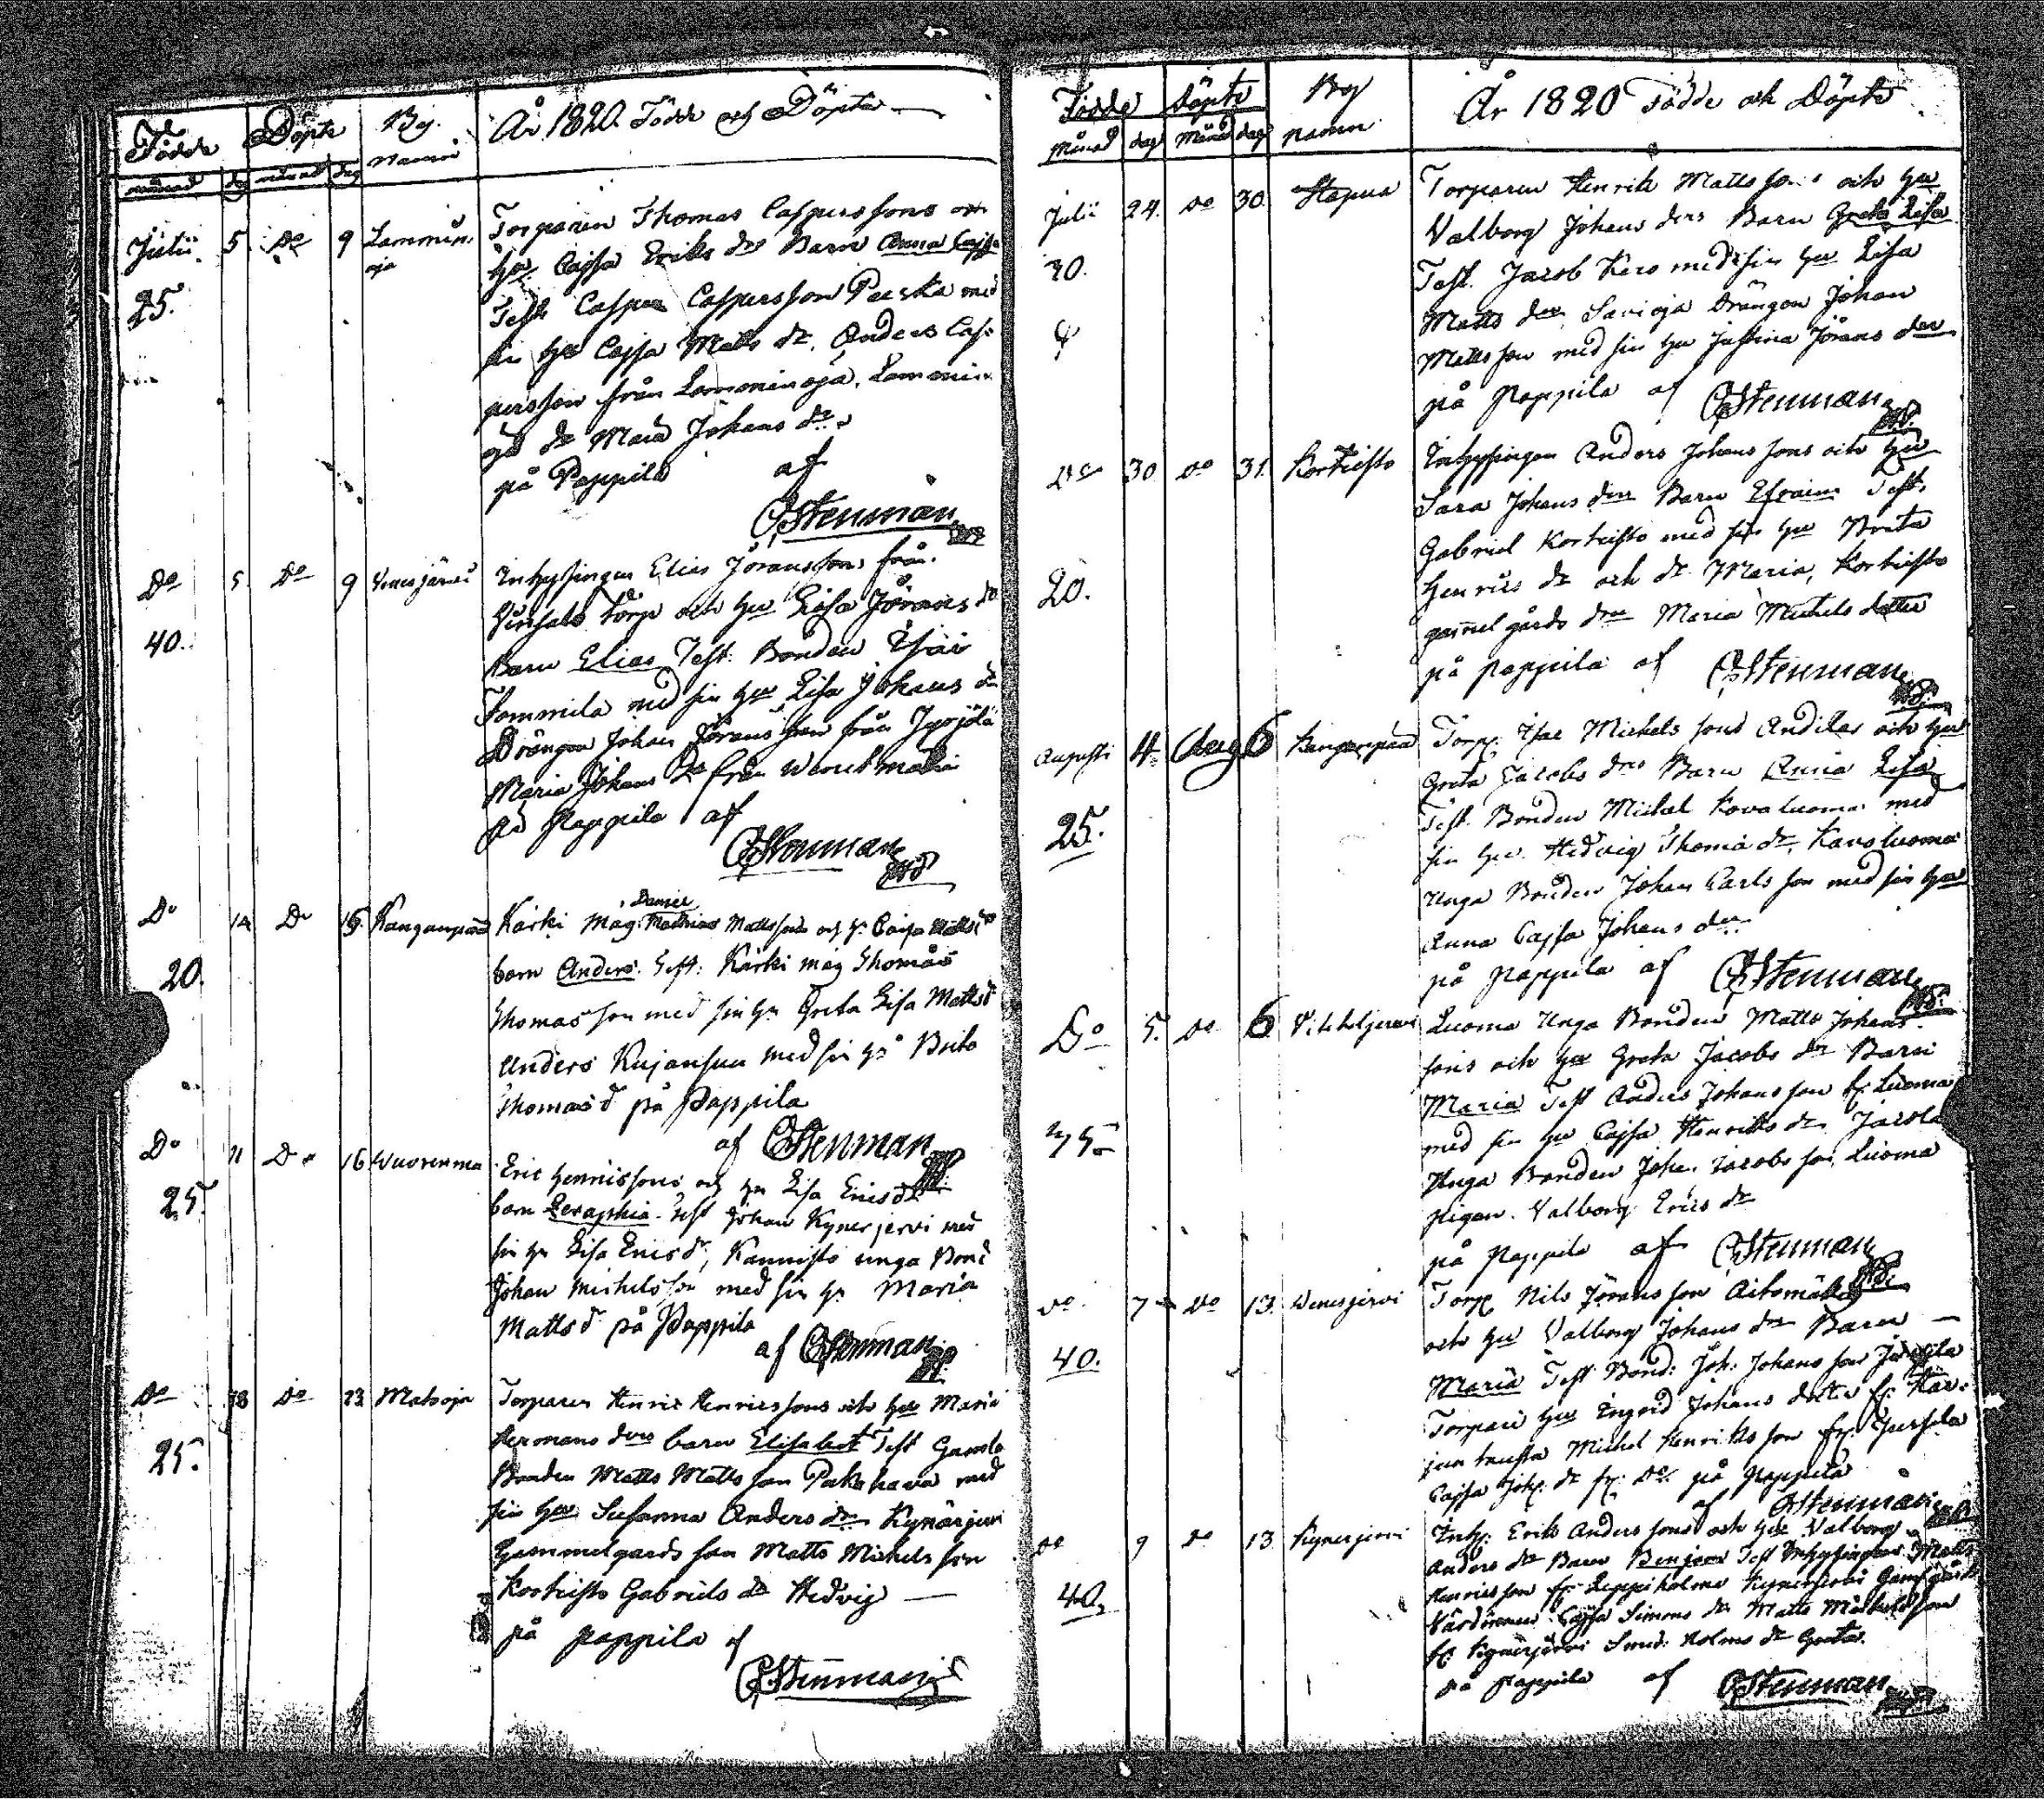 Födde Döpte By. namn År 1820 Födde och Döpte
månad dag månad dag
Julii 5. Do 9 Lammin
oja
Torparen Thomas Caspersons och
hu Cajsa Eriks drs Barn Anna Cajsa
25.
Test. Casper Caspersson Perska med
sin hu Cajsa Matts dr. Anders Cas-
persson från Lamminoja, Lammin
oja dr Maria Johans dr
på Pappila af
CStenman
Do 5. Do 9 Venesjärvi
Inhysingen Elias Jöranssons från
torp och hu Lisa Jörans dr
40.
Barn Elias Test. Bonden Esaias
Tommila med sin hu Lisa Johans dr
Drängen Johan Jöransson från Jyrjölä
Maria Johans dr från
på Pappila af
CStenman
Do 14 Do 15. Kanganpää
Daniel
Kärki Mag. Mathias Mattssons och h. Caisa Matts dr
barn Anders. Test: Kärki mag Thomas
20.
Thomasson med sin hu Greta Lisa Matts d
Anders Kujansuu med sin hu Brita
Thomas d på Pappila
af CStenman
Do 11 Do 16 Wuorenma
Eric Henricssons och hu Lisa Erics dr
25.
barn Seraphia. Test Johan Kynerjervi med
sin hu Lisa Erics d, Kannisto unga Bond
Johan Michelsson med sin hu Maria
Matts d på Pappila
af CStenman
Do 18 Do 23 Matsoja
Torparen Henric Henricssons och hu Maria
Hermans drs barn Elisabet Test Gamla
25.
Bonden Matts Mattsson Pakkava med
sin hu Susanna Anders dr Kynärjervi
Gammelgårds son Matts Michelsson
Kortiisto Gabriels dr Hedvig
på pappila af
CStenman
Födde Döpte By namn År 1820 Födde och Döpte
Månad dag Månad dag
Julii 24. Do 30. Hapua
Torparen Henrik Mattssons och hu
Valborg Johans drs Barn Greta Lisa
30.
Test. Jacob Kero med sin hu Lisa
Matts dr Savioja Drängen Johan
Mattsson med sin hu Justina Jörans dr
på Pappila af CStenman
Do 30 Do 31. Kortiisto
Inhysingen Anders Johanssons och hu
Sara Johans drs Barn Efraim Test.
Gabriel Kortiisto med sin hu Brita
20.
Henrics dr och dr Maria, Kortiisto
gammelgårds dr Maria Michels dotter
på pappila af CStenman
Augusti 4. Aug 6 Kanganpää
Torp. Isac Michelssons Andilas och hu
Greta Jacobs drs Barn Anna Lisa
25.
Test. Bonden Michel Kovaluoma med
sin hu Hedvig Thomæ dr, Kavoluoma
Unga Bonden Johan Carlsson med sin hu
Anna Cajsa Johans dr
på Pappila af CStenman
Do 5. Do 6
Luoma Unga Bonden Matts Johans-
sons och hu Greta Jacobs dr Barn
Maria Test Anders Johansson fr. Luoma
med sin hu Cajsa Henriks dr Jacola
Unga Bonden Joha. Jacobsson, Luoma
Pigan. Valborg Erics dr
på Pappila af CStenman
Do 7 Do 13. Venesjervi
Torp. Nils Jöransson Aitomäki
och hu Valborg Johans dr Barn
40.
Maria Test Bond: Joh: Johansson
Torpari hu Ingrid Johans dotter fr. Har-
juntausta Michel Henriksson fr.
Cajsa Joh. dr fr. Do på Pappila
af CStenman
Do 9 Do 13. Kynerjervi
Inhy. Erik Anderssons och hu Valborg
Anders dr Barn Benjam Test Inhysingen Matts
Henricsson fr. Leppiholma Kynerjervi Gamelgårds
40.
Värdinnan Cajsa Simons dr Matts Michelsson
fr. Kynerjärvi Smed: Holms dr Greta.
på Pappila af CStenman